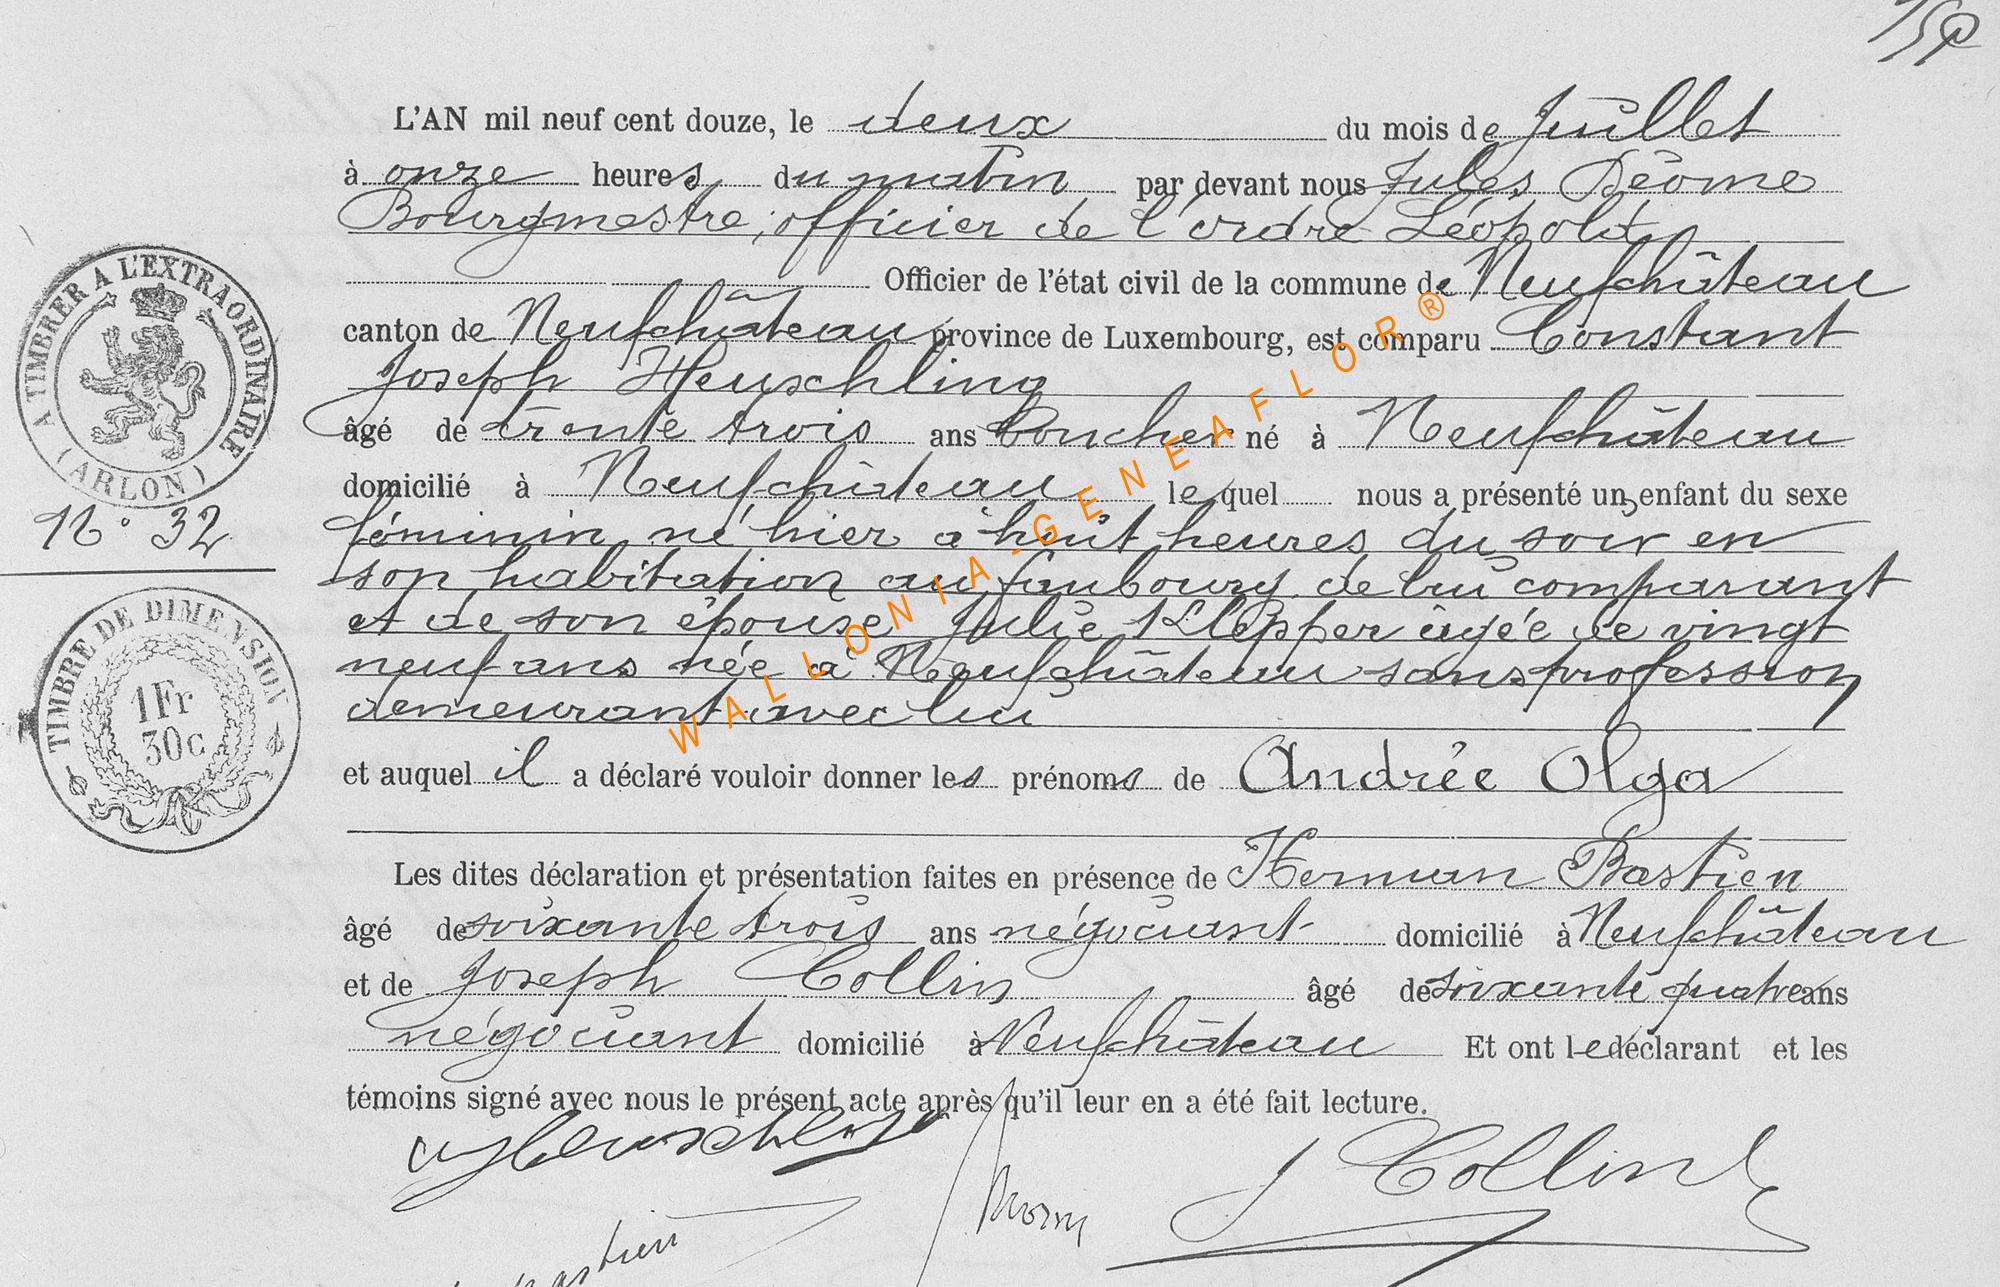 L'AN mil neuf cent douze, le deux du mois de Juillet
à onze heures du matin par devant nous Jules Déome
Bourgmestre, officier de l'ordre Léopold
Officier de l'état civil de la commune de Neufchâteau
canton de Neufchâteau province de Luxembourg, est comparu Constant
Joseph Heuschling
âgé de trente trois ans boucher né à Neufchâteau
domicilié à Neufchâteau lequel nous a présenté un enfant du sexe
féminin né hier à huit heures du soir en
son habitation au faubourg de lui comparant
et de son épouse Julie Klepper âgée de vingt
neuf ans née à Neufchâteau sans profession
demeurant avec lui
et auquel il a déclaré vouloir donner les prénoms de Andrée Olga
Les dites déclaration et présentation faites en présence de Herman Bastien
âgé de soixante trois ans négociant domicilié à Neufchâteau
et de Joseph Collin âgé de soixante quatre ans
négociant domicilié à Neufchâteau Et ont le déclarant et les
témoins signé avec nous le présent acte après qu'il leur en a été fait lecture.
Heuschling
J Collin
Bastien
A TIMBRER A L'EXTRAORDINAIRE
(ARLON)
N° 32
TIMBRE DE DIMENSION
1Fr
30c
WALLONIA-GENEAFLOR®